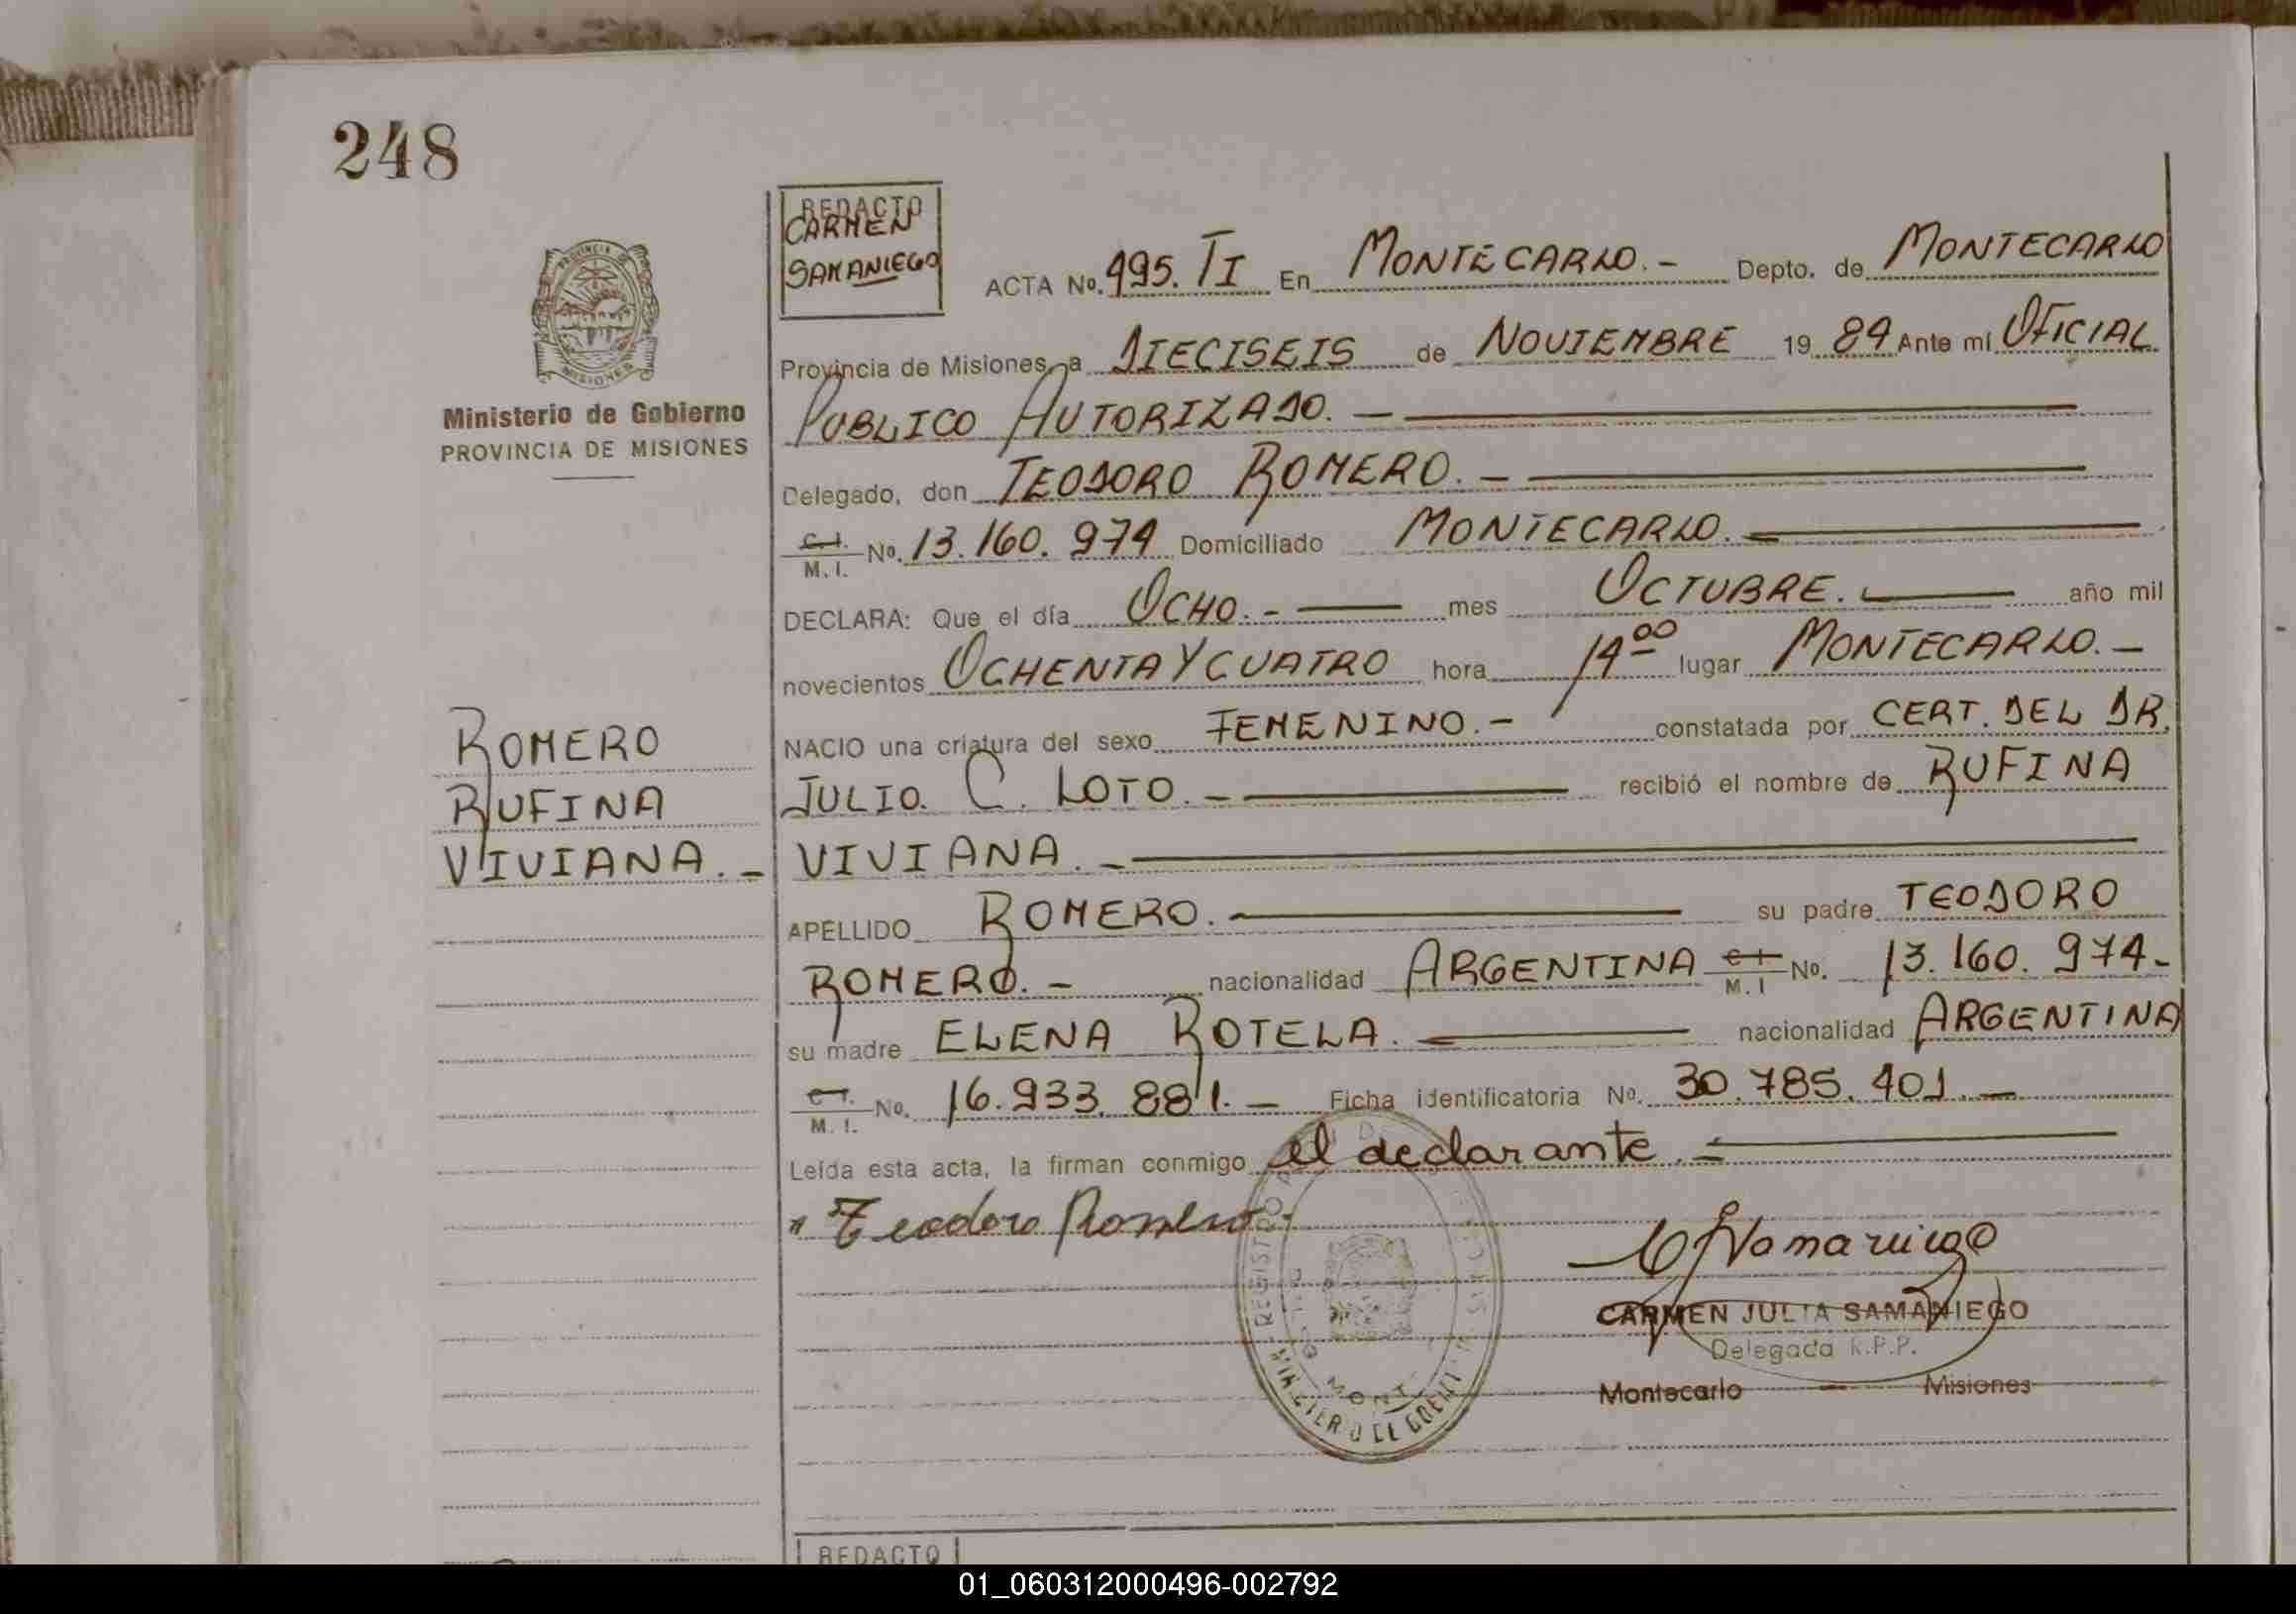 248
REDACTO
CARMEN
SAMANIEGO
ACTA No. 495. TI En MONTECARLO.- Depto. de MONTECARLO
Provincia de Misiones, a DIECISEIS de NOVIEMBRE 19 84 Ante mí OFICIAL
PUBLICO AUTORIZADO. —
Delegado, don TEODORO ROMERO. —
C.I. M.I. No. 13.160.974 Domiciliado MONTECARLO. —
DECLARA: Que el día OCHO.- — mes OCTUBRE. — año mil
novecientos OCHENTA Y CUATRO hora 14 00 lugar MONTECARLO. —
NACIO una criatura del sexo FEMENINO. — constatada por CERT. DEL DR.
JULIO. C. LOTO. — recibió el nombre de RUFINA
VIVIANA. —
APELLIDO ROMERO. — su padre TEODORO
ROMERO. — nacionalidad ARGENTINA C.I. M.I No. 13.160.974-
su madre ELENA ROTELA. — nacionalidad ARGENTINA
C.I. M.I. No. 16.933.881. — Ficha identificatoria No. 30.785.401. —
Leída esta acta, la firman conmigo el declarante. —
Teodoro Romero
CARMEN JULIA SAMANIEGO
Delegada R.P.P.
Montecarlo — Misiones
PROVINCIA DE
MISIONES
Ministerio de Gobierno
PROVINCIA DE MISIONES
ROMERO
RUFINA
VIVIANA. —
REGISTRO
MONT
REDACTO
01_060312000496-002792